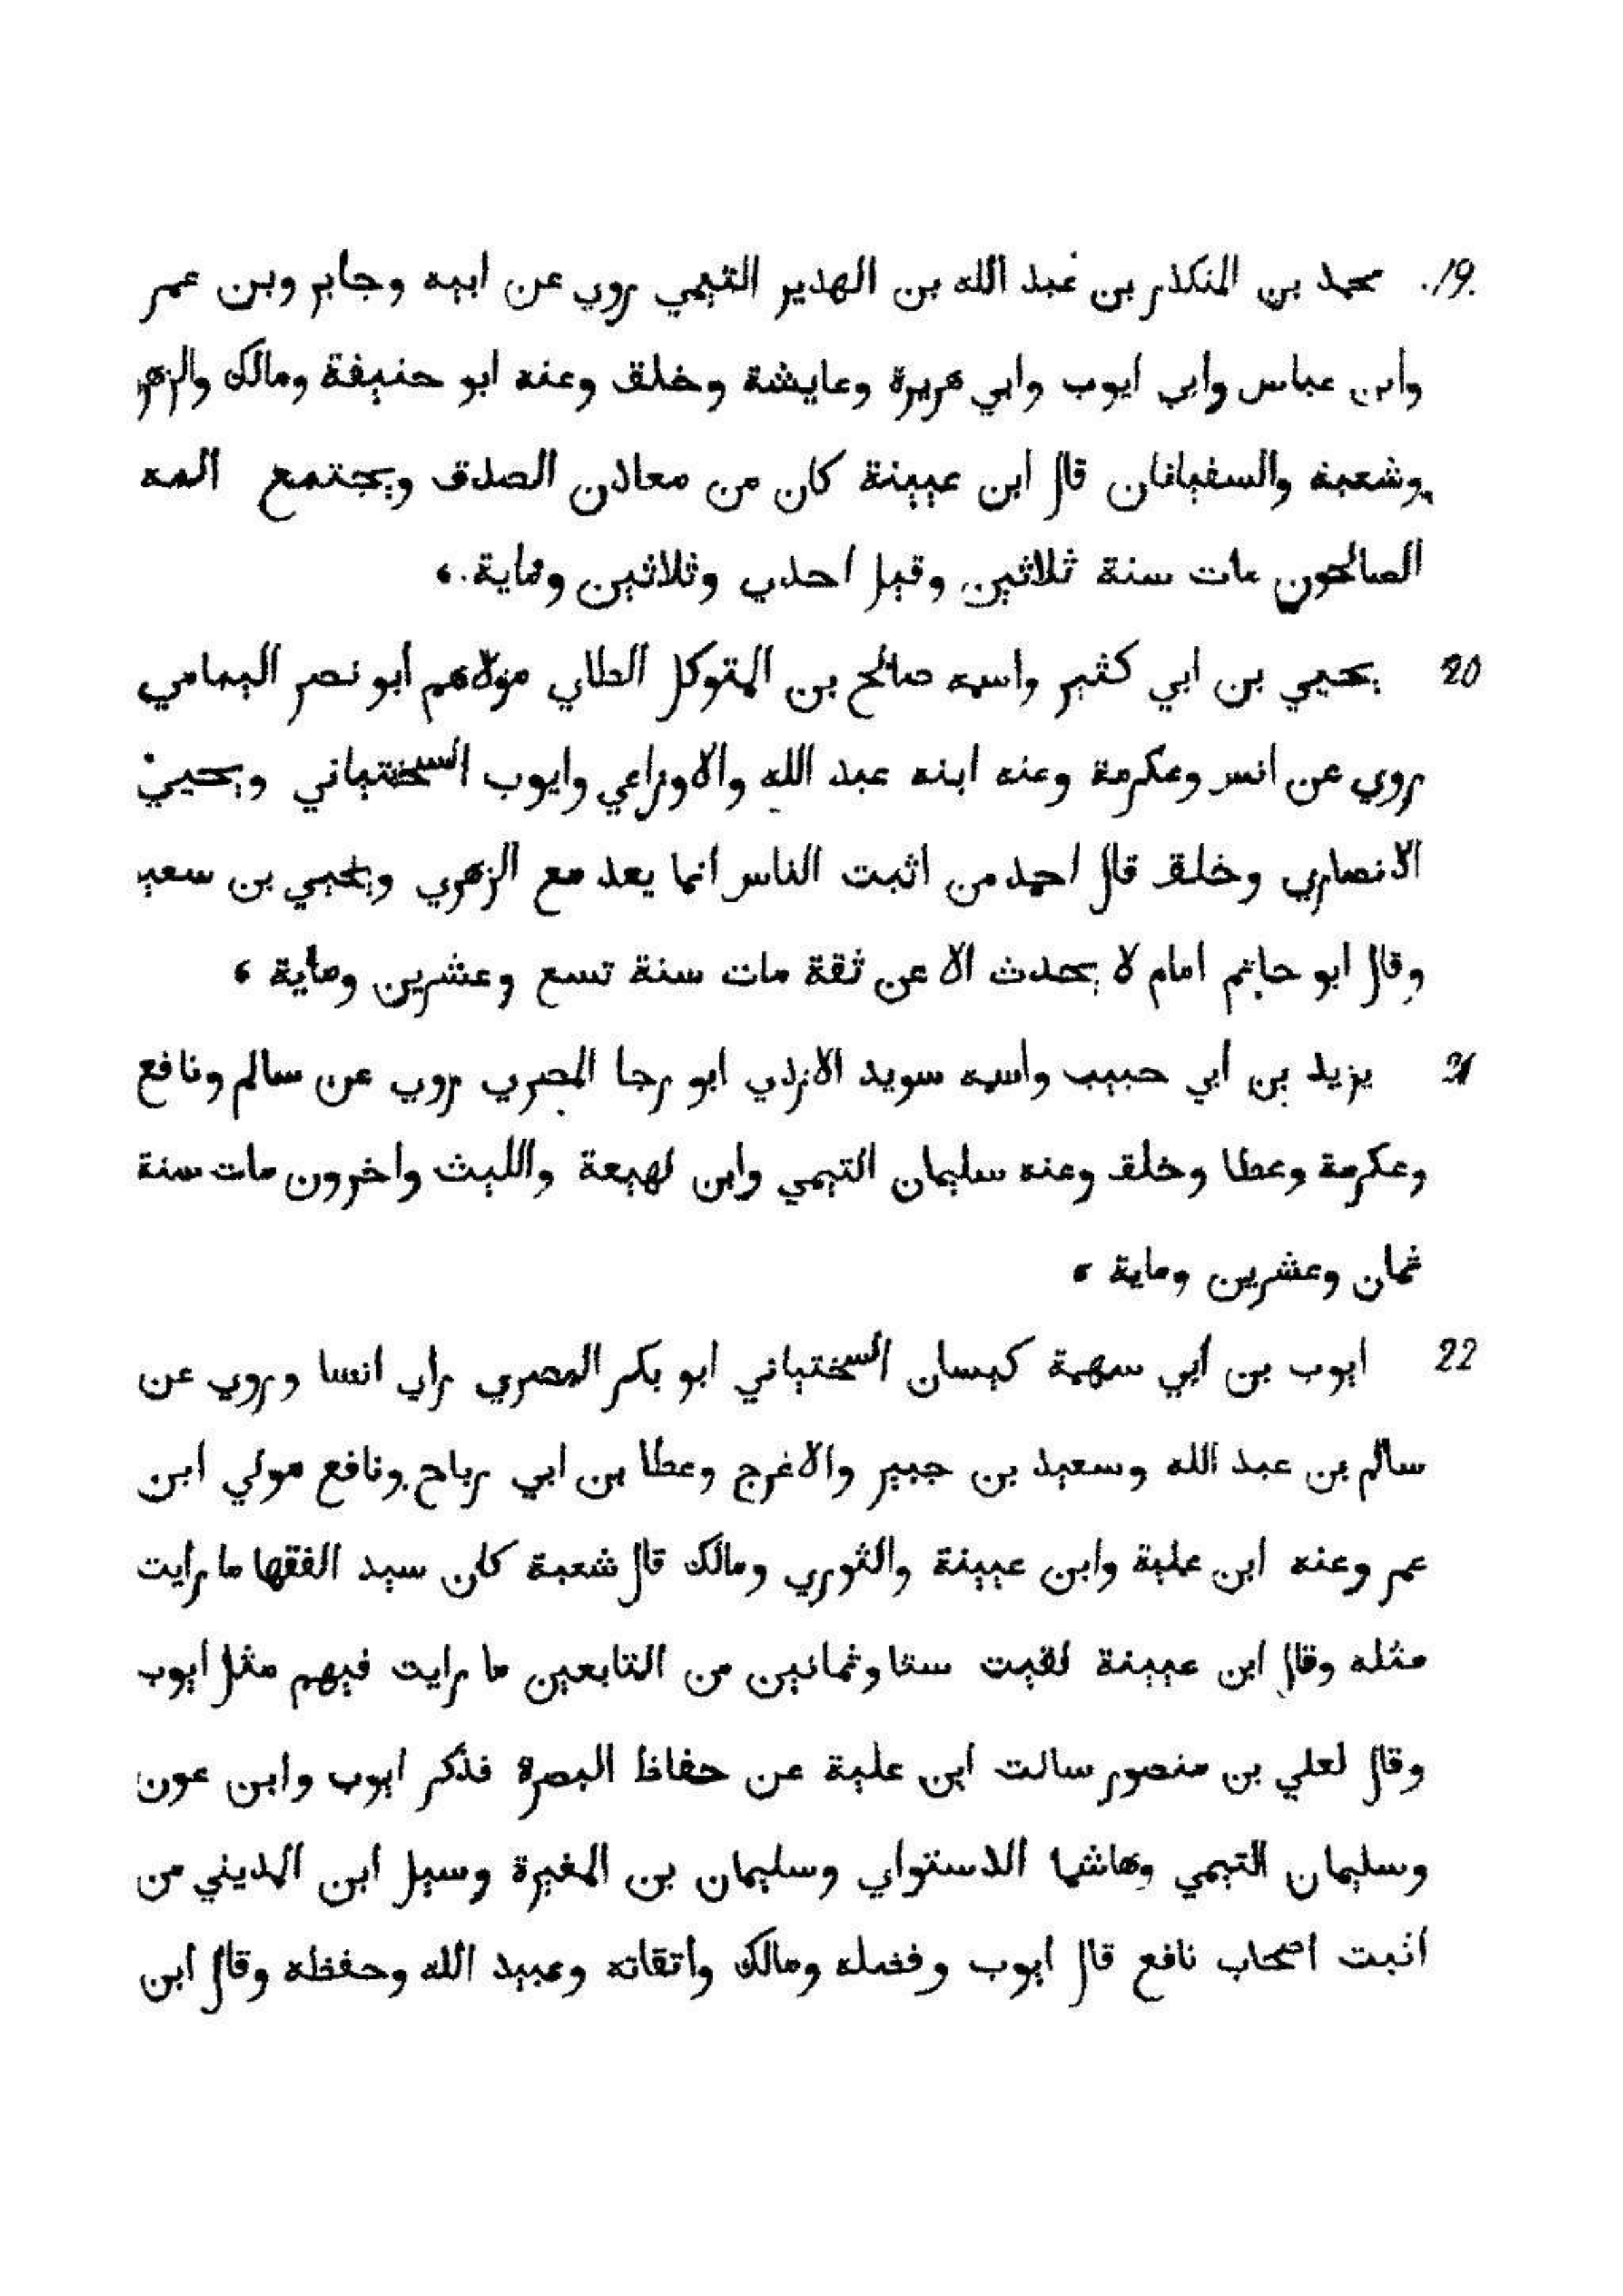 19. محمد بن المنكذر بن غبد الله بن الهدير التيمي روي عن ابيه وجابر وبن عمر
وابن عباس وابي ايوب وابي هريرة وعايشة وخلق وعنه ابو حنيفة ومالك والزهر
وشعبة والسفيانان قال ابن عيينة كان من معادن الصدق ويجتمع اليه
الصالحون مات سنة ثلاثين وقيل احدي وثلاثين وماية
20 يحيي بن ابي كثير واسمه صالح بن المتوكل الطاي مولاهم ابو نصر اليمامي
روي عن انس وعكرمة وعنه ابنه عبد الله والاوزاعي وايوب السختياني ويحيي
الانصاري وخلق قال احمد من اثبت الناس انما يعد مع الزهري ويحيي بن سعيد
وقال ابو حاتم امام لا يحدث الا عن ثقة مات سنة تسع وعشرين وماية
21 يزيد بن ابي حبيب واسمه سويد الازدي ابو رجا المصري روي عن سالم ونافع
وعكرمة وعطا وخلق وعنه سليمان التيمي وابن لهيعة والليث واخرون مات سنة
ثمان وعشرين وماية
22 ايوب بن ابي سهمة كيسان السختياني ابو بكر المصري راي انسا وروي عن
سالم بن عبد الله وسعيد بن جبير والاغرج وعطا بن ابي رباح ونافع مولي ابن
عمر وعنه ابن علية وابن عيينة والثوري ومالك قال شعبة كان سيد الفقها ما رايت
مثله وقال ابن عيينة لقيت ستا وثمانين من التابعين ما رايت فيهم مثل ايوب
وقال لعلي بن منصور سالت ابن علية عن حفاظ البصرة فذكر ايوب وابن عون
وسليمان التيمي وهاشما الدستواي وسليمان بن المغيرة وسيل ابن المديني من
اثبت اصحاب نافع قال ايوب وفضله ومالك واتقانه وعبيد الله وحفظه وقال ابن